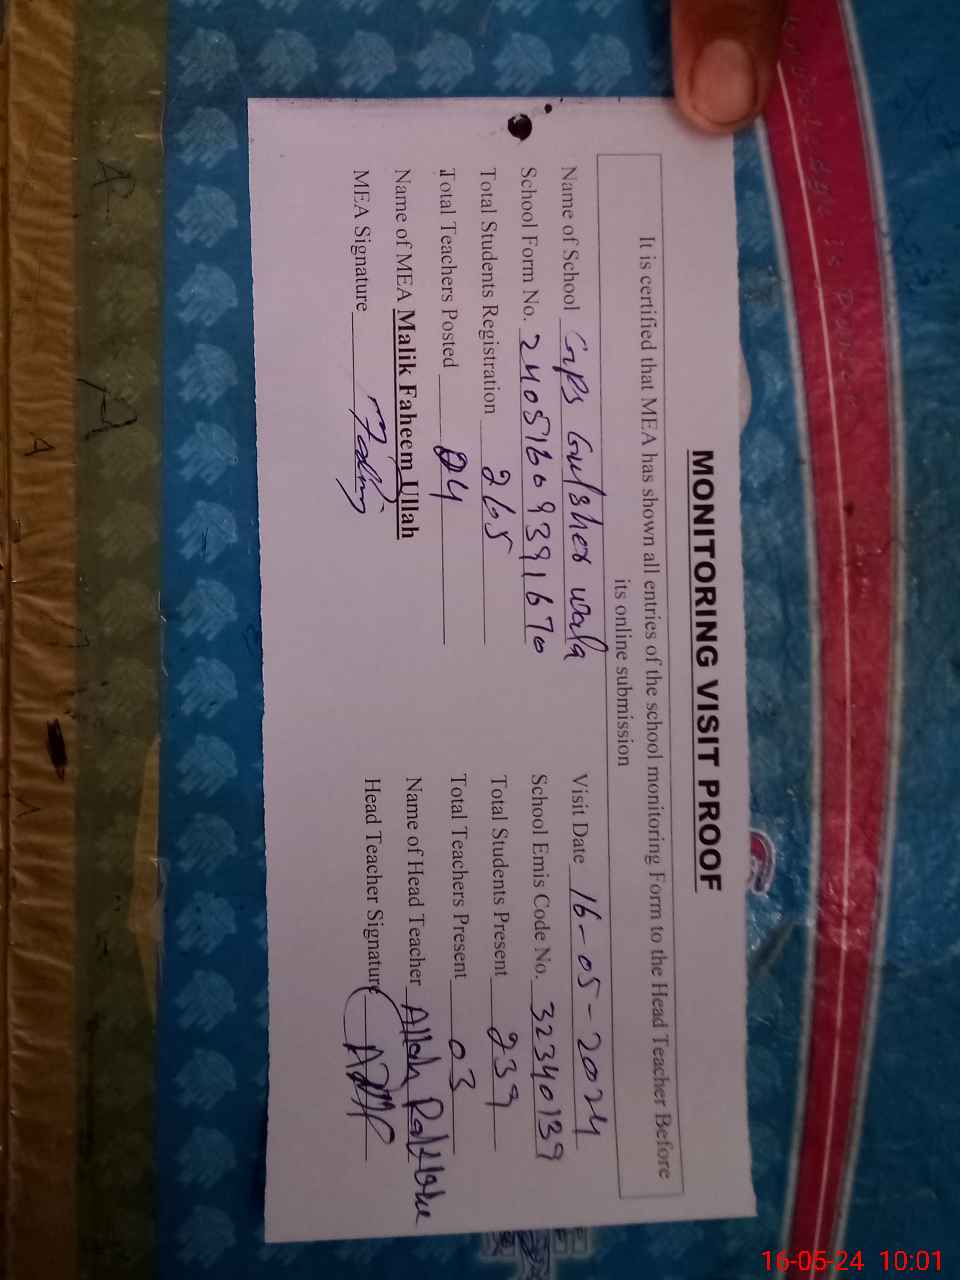 MONITORING VISIT PROOF
It is certified that MEA has shown all entries of the school monitoring Form to the Head Teacher Before
its online submission
Name of School GPS Gulsher wala Visit Date 16-05-2024
School Form No. 24051609391670 School Emis Code No. 32340139
Total Students Registration 265 Total Students Present 239
Total Teachers Posted 04 Total Teachers Present 03
Name of MEA Malik Faheem Ullah Name of Head Teacher Allah
MEA Signature Head Teacher Signature
16-05-24 10:01